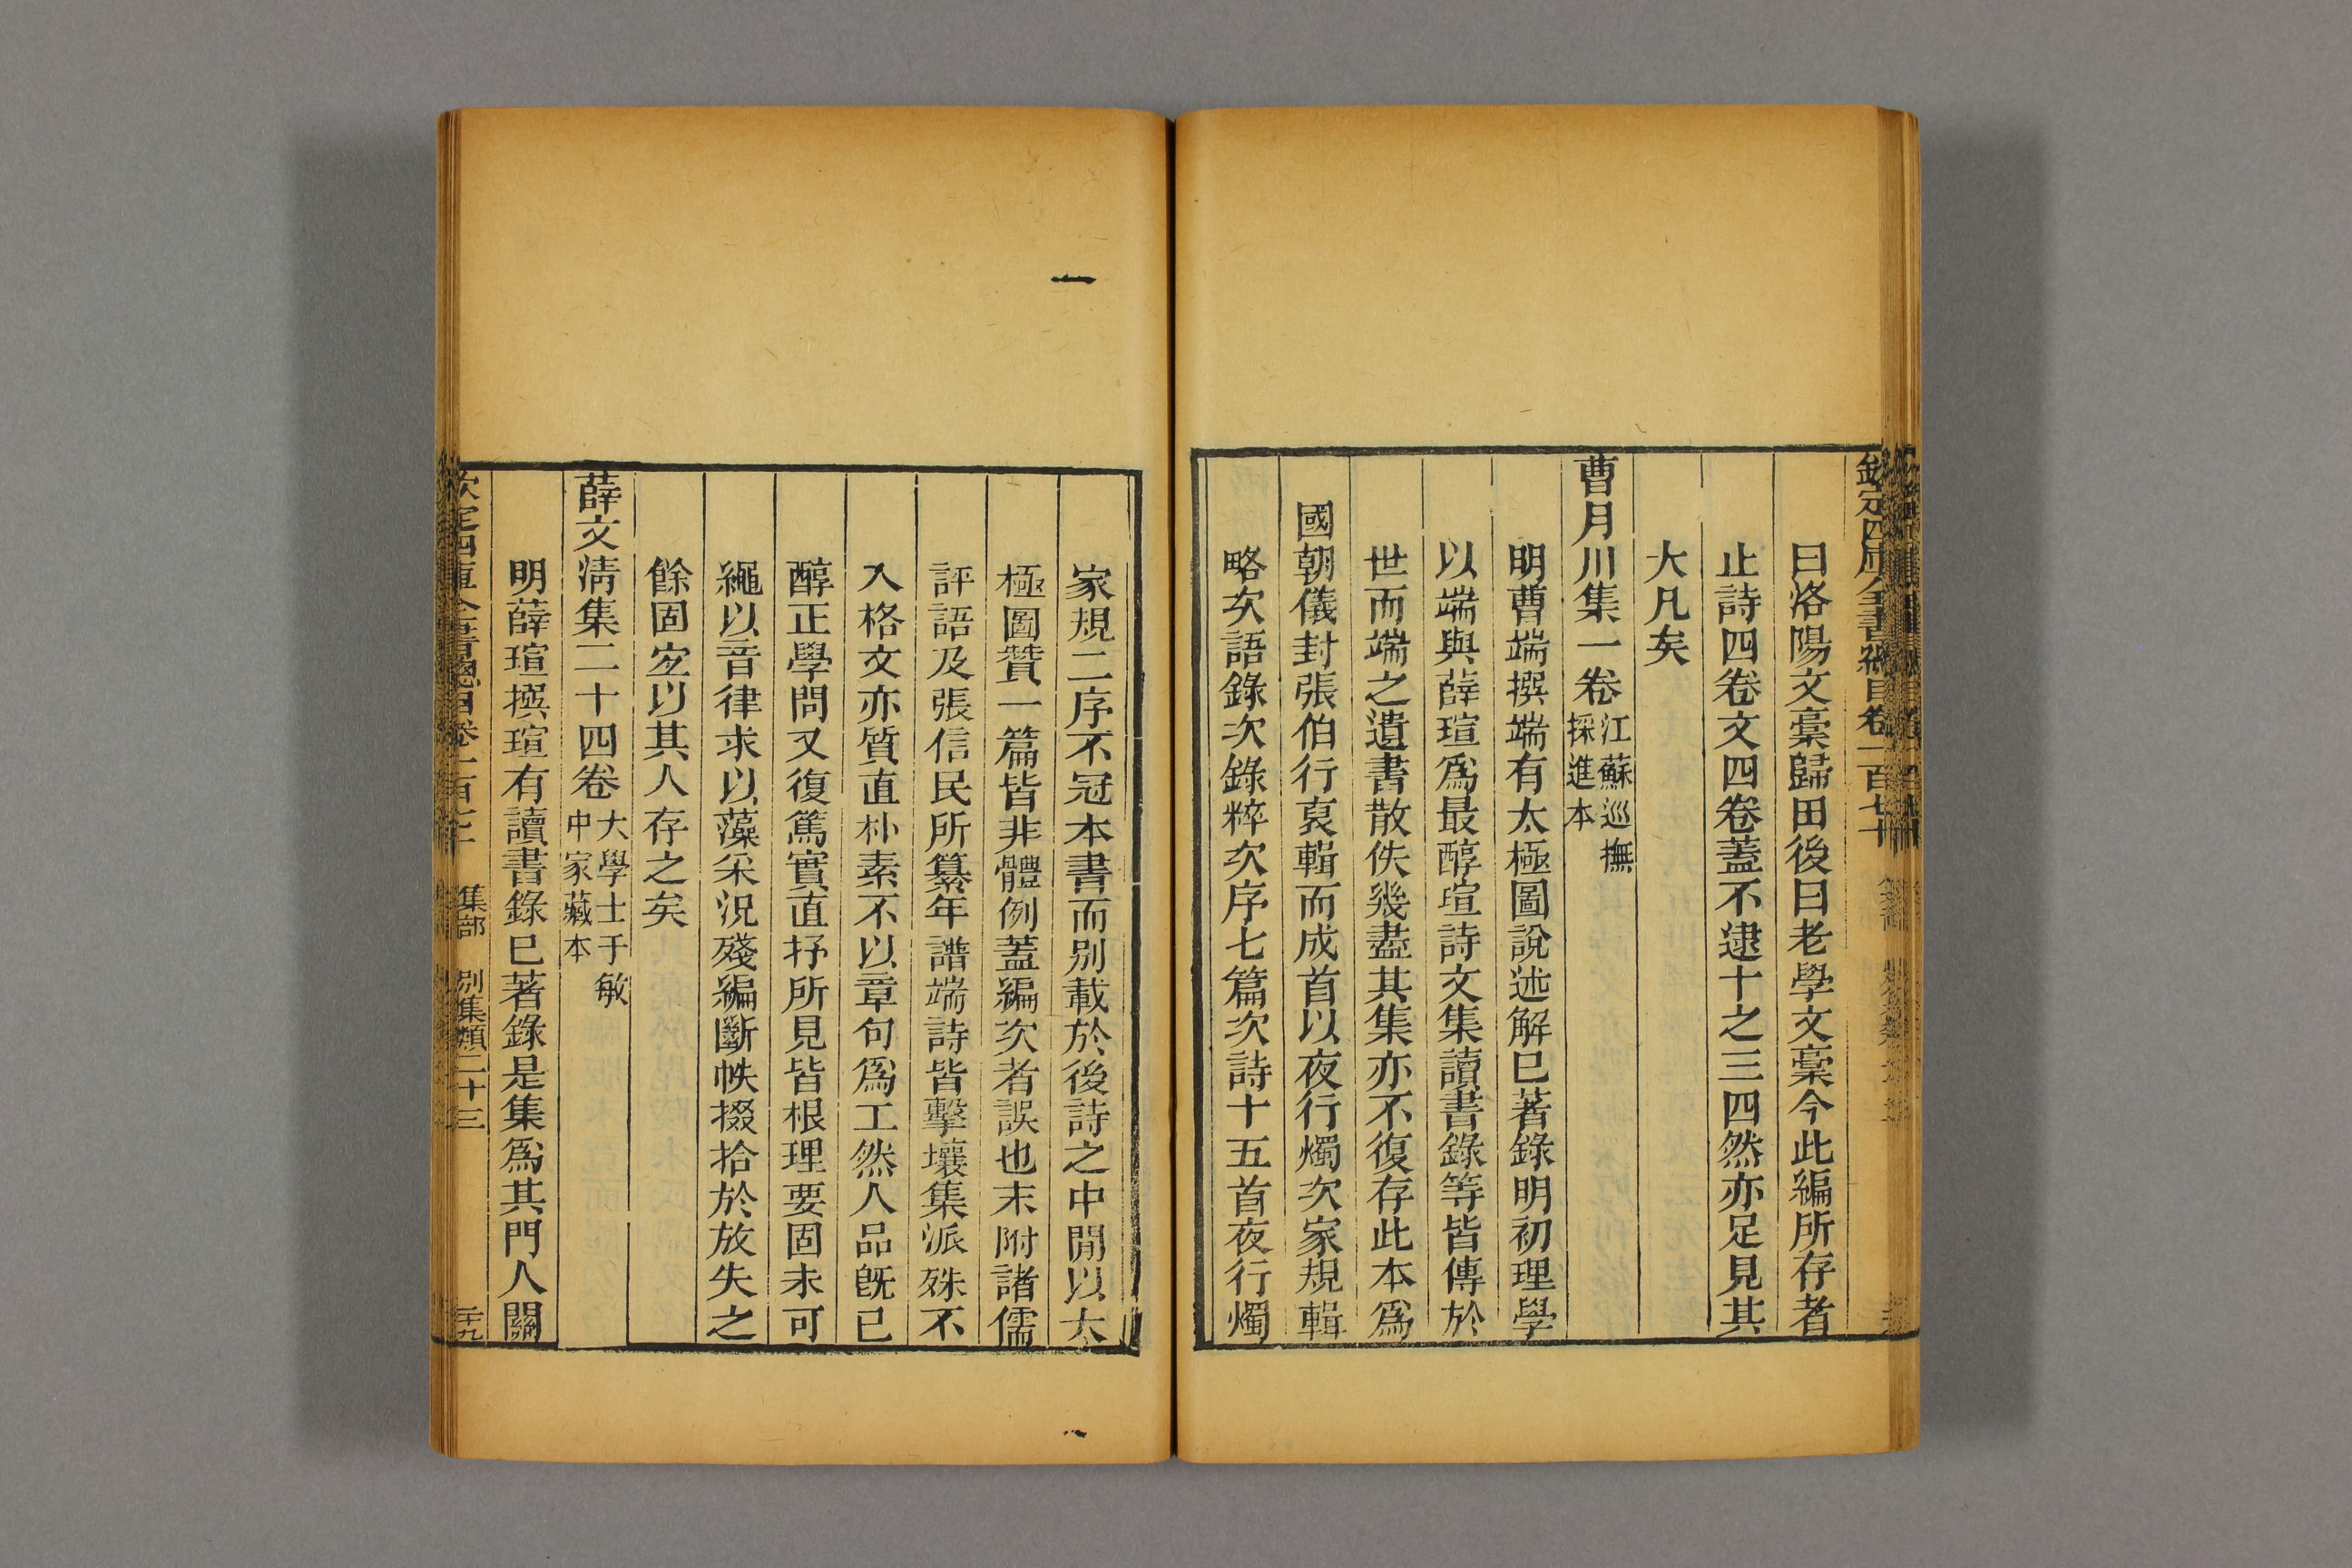 欽定四庫全書總目卷一百七十
曰洛陽文稾歸田後曰老學文稾今此編所存者
止詩四卷文四卷蓋不逮十之三四然亦足見其
大凡矣
曹月川集一卷江蘇巡撫採進本
明曹端撰端有太極圖說述解已著錄明初理學
以端與薛瑄爲最醇瑄詩文集讀書錄等皆傳於
世而端之遺書散佚幾盡其集亦不復存此本爲
國朝儀封張伯行裒輯而成首以夜行燭次家規輯
略次語錄次錄粹次序七篇次詩十五首夜行燭
家規二序不冠本書而别載於後詩之中閒以太
極圖贊一篇皆非體例蓋編次者誤也末附諸儒
評語及張信民所纂年譜端詩皆擊壤集派殊不
入格文亦質直朴素不以章句爲工然人品旣已
醇正學問又復篤實直抒所見皆根理要固未可
繩以音律求以藻采況殘編斷帙掇拾於放失之
餘固宐以其人存之矣
薛文淸集二十四卷大學士于敏中家藏本
明薛瑄撰瑄有讀書錄已著錄是集爲其門人關
欽定四庫全書總目卷一百七十 集部 别集類二十三 二十九